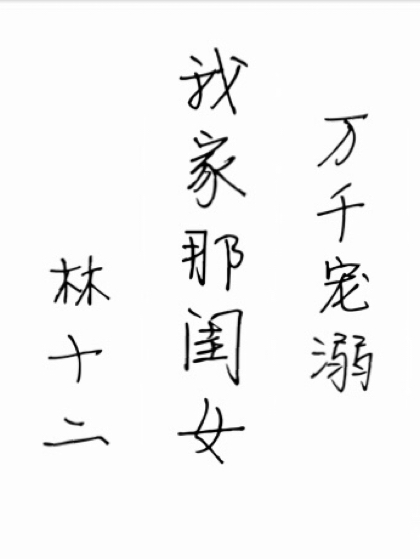 万千宠溺
我家那闺女
林十二